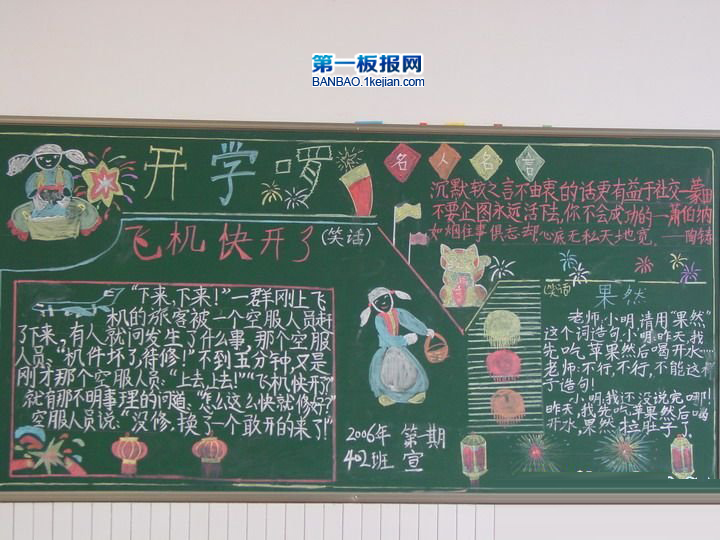 第一板报网
BANBAO.1kejian.com
开学
名人名言
沉默较之言不由衷的话更有益于社交—蒙田
不要企图永远活下去,你不会成功的—萧伯纳
如烟往事俱忘却,心底无私天地宽。——陶铸
飞机快开了(笑话)
"下来,下来!"一群刚上飞
机的旅客被一个空服人员赶
了下来,有人就问发生了什么事,那个空服
人员:"机件坏了待修!"不到五分钟,又是
刚才那个空服人员:"上去,上去!""飞机快开了"
就有那不明事理的问道:"怎么这么快就修好?"
空服人员说:"没修,换了一个敢开的来了!"
2006年 第期
402班 宣
(笑话)
果然
老师:小明,请用"果然"
这个词造句,小明:昨天,我
先吃苹果然后喝开水……
老师:不行,不行,不能这样
子造句!
小明:我还没说完哪!
昨天,我先吃苹果然后喝
开水,果然拉肚子了。